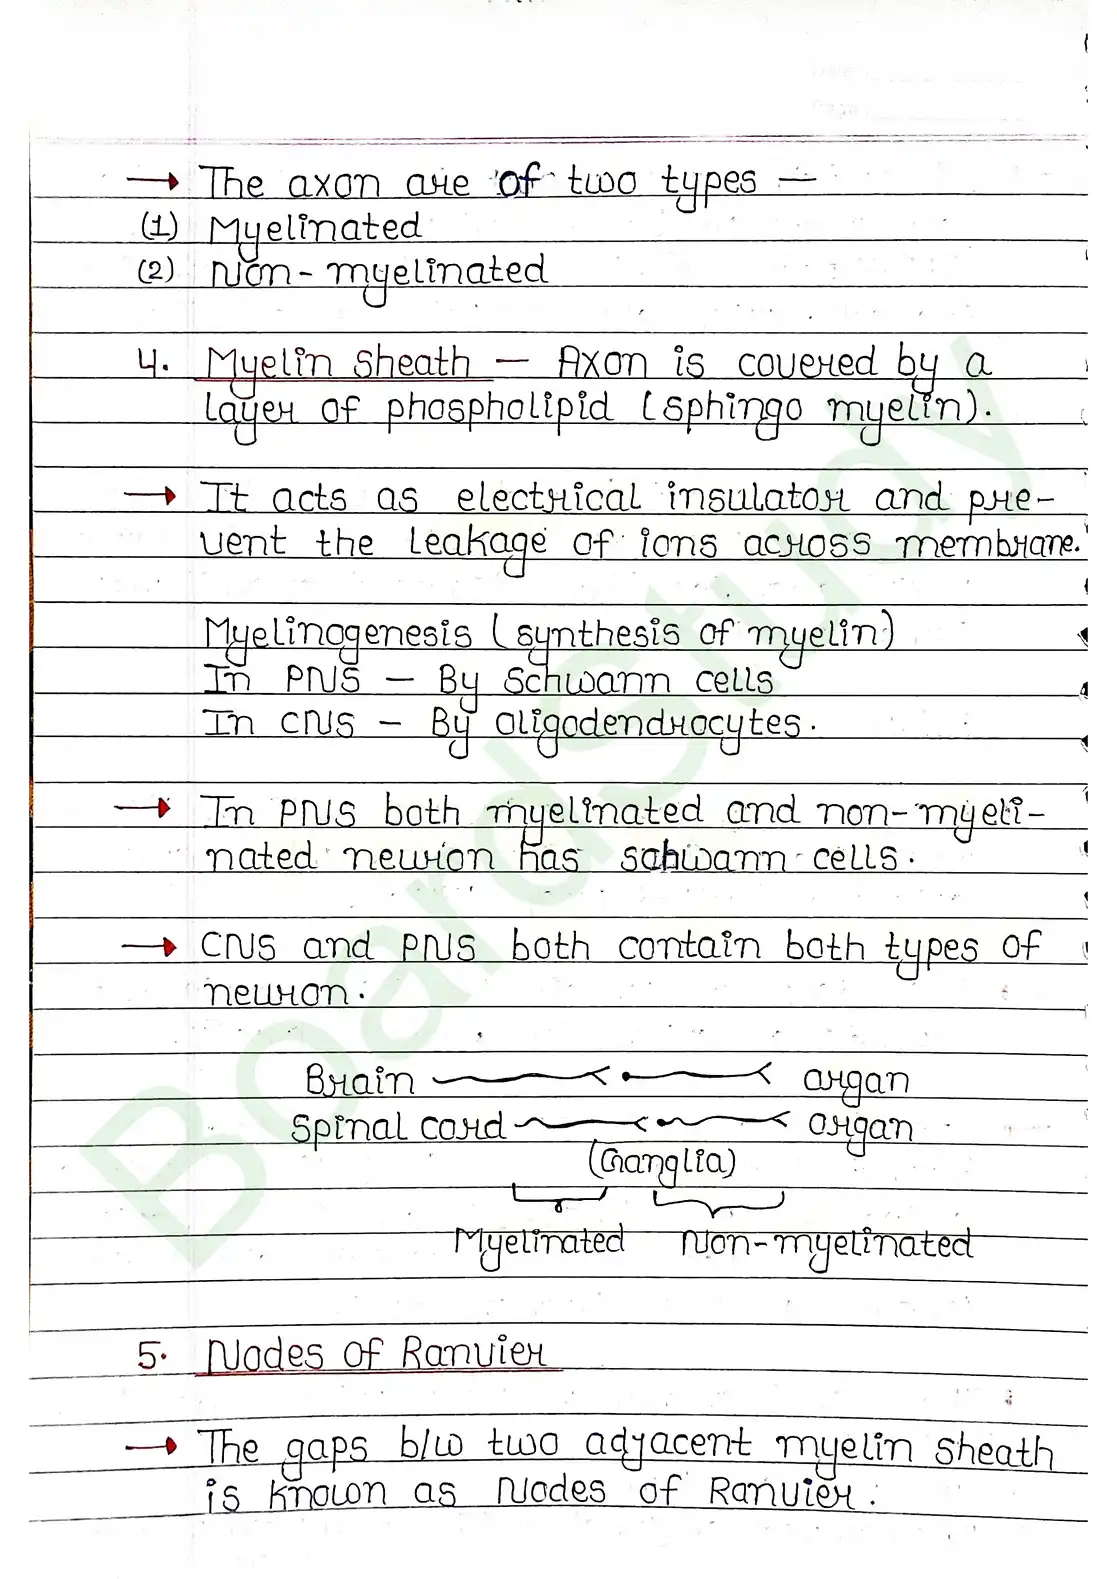 → The axon are of two types —
(1) Myelinated
(2) Non-myelinated
4. Myelin Sheath — Axon is covered by a
layer of phospholipid (sphingo myelin).
→ It acts as electrical insulator and pre-
vent the leakage of ions across membrane.
Myelinogenesis (synthesis of myelin)
In PNS — By Schwann cells
In CNS — By oligodendrocytes.
→ In PNS both myelinated and non-myeli-
nated neuron has schwann cells.
→ CNS and PNS both contain both types of
neuron.
Brain organ
Spinal cord organ
(Ganglia)
Myelinated Non-myelinated
5. Nodes of Ranvier
→ The gaps b/w two adjacent myelin sheath
is known as Nodes of Ranvier.
BoardStudy